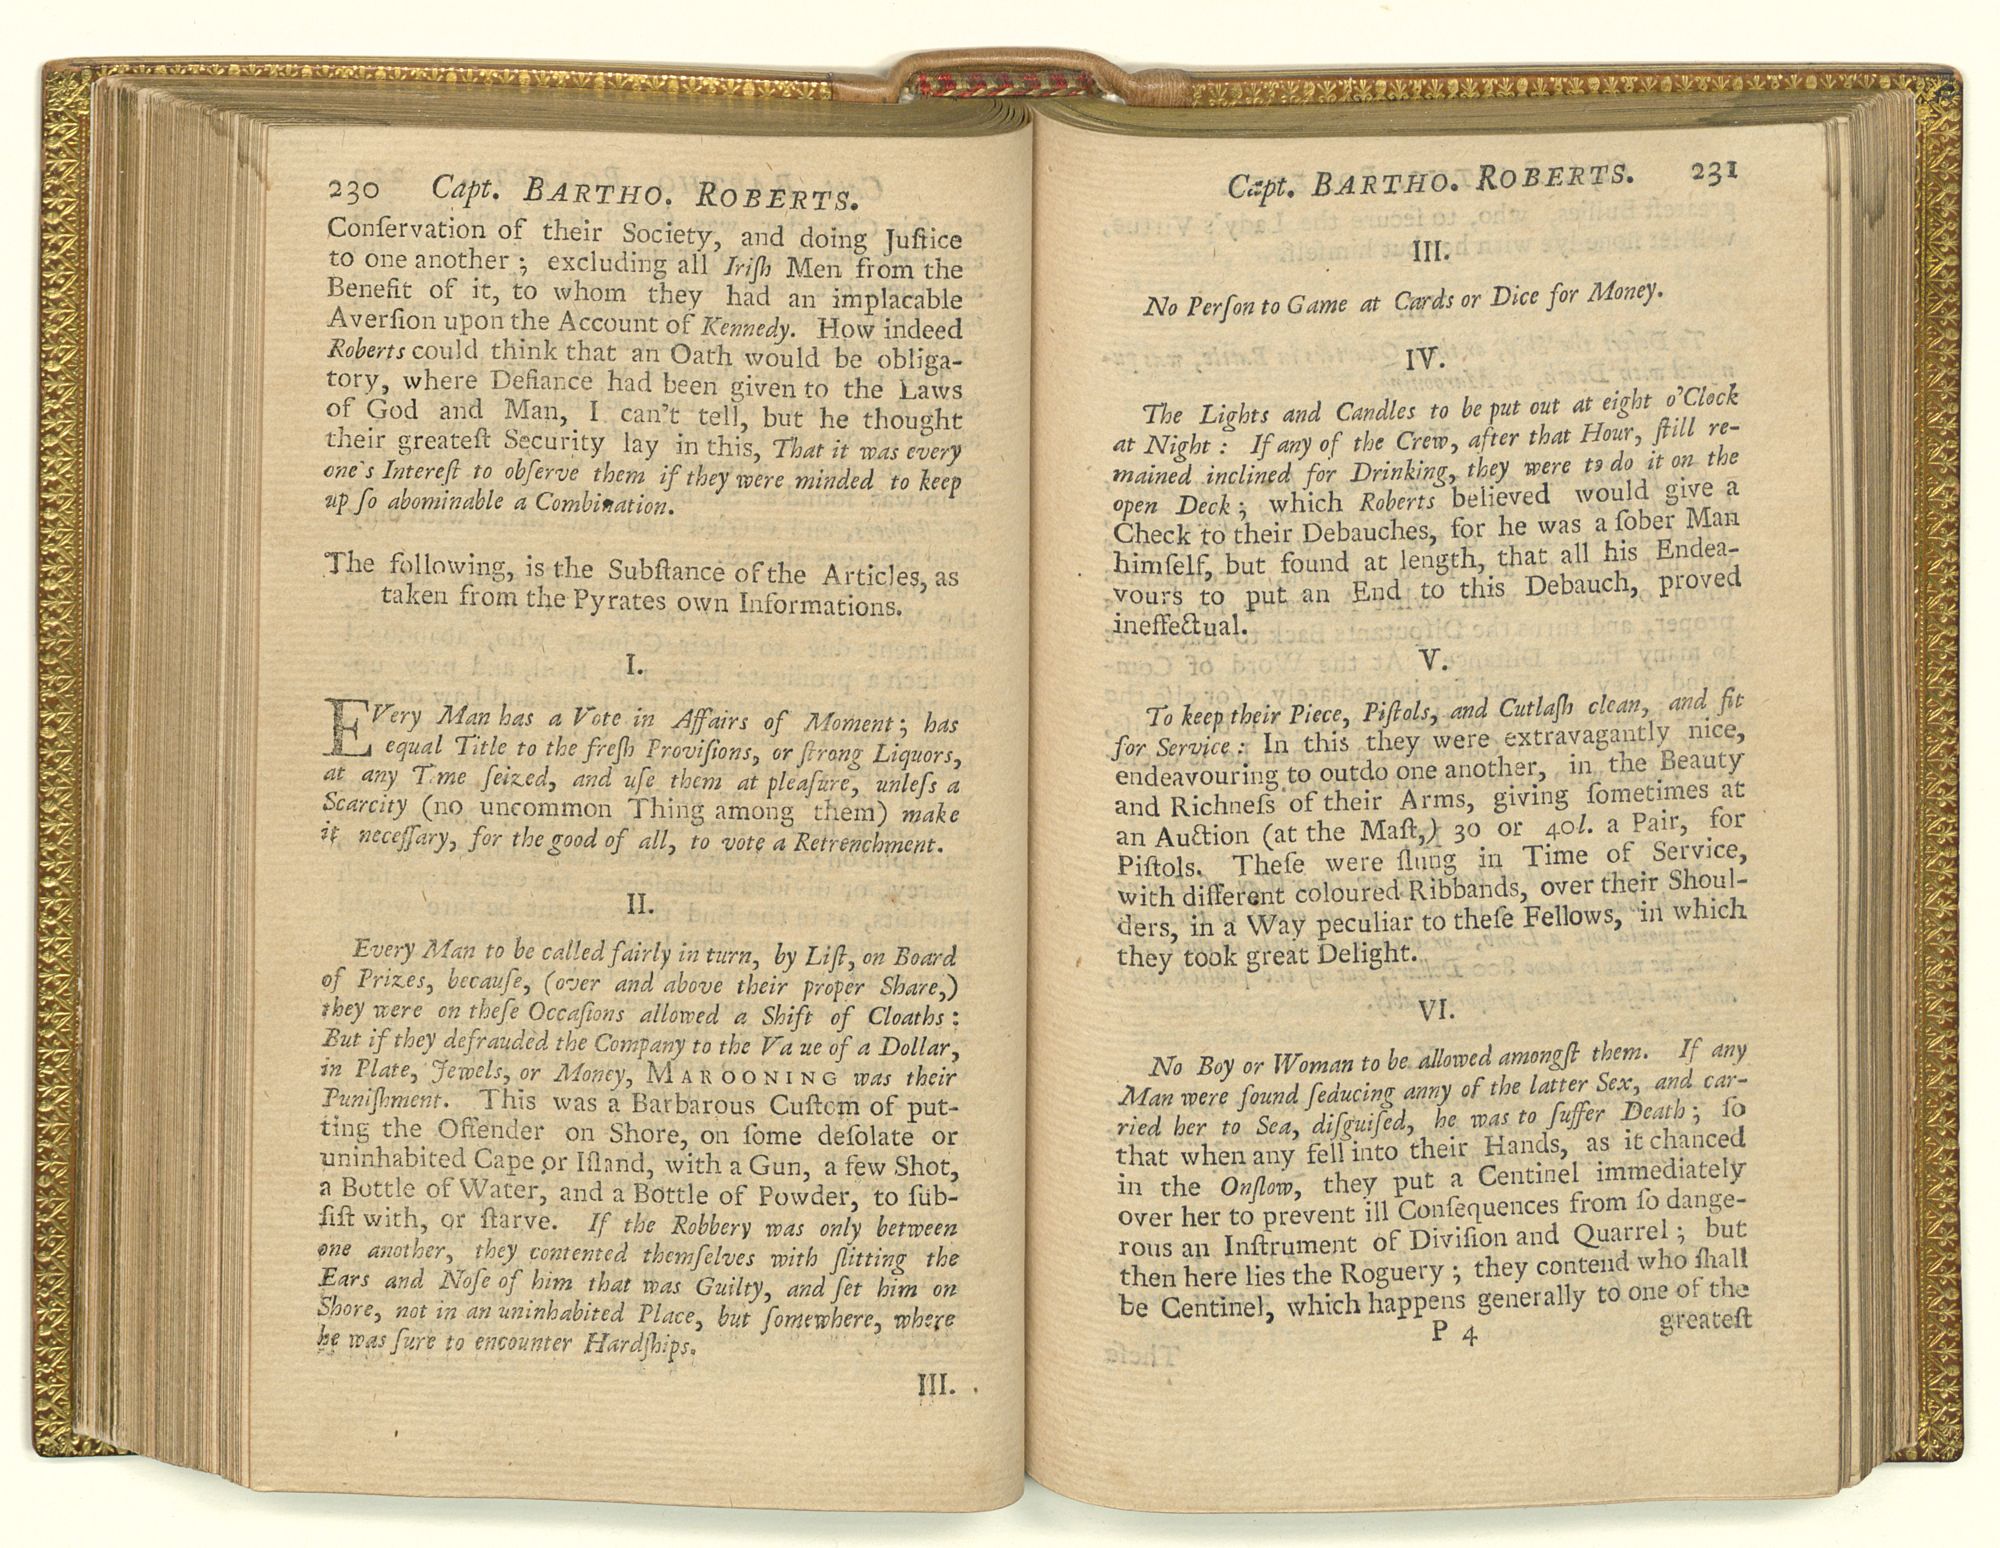 230 Capt. BARTHO. ROBERTS.
Conſervation of their Society, and doing Juſtice
to one another; excluding all Iriſh Men from the
Benefit of it, to whom they had an implacable
Averſion upon the Account of Kennedy. How indeed
Roberts could think that an Oath would be obliga-
tory, where Defiance had been given to the Laws
of God and Man, I can't tell, but he thought
their greateſt Security lay in this, That it was every
one's Intereſt to obſerve them if they were minded to keep
up ſo abominable a Combination.
The following, is the Subſtance of the Articles, as
taken from the Pyrates own Informations.
I.
EVery Man has a Vote in Affairs of Moment; has
equal Title to the freſh Proviſions, or ſtrong Liquors,
at any T me ſeized, and uſe them at pleaſure, unleſs a
Scarcity (no uncommon Thing among them) make
it neceſſary, for the good of all, to vote a Retrenchment.
II.
Every Man to be called fairly in turn, by Liſt, on Board
of Prizes, becauſe, (over and above their proper Share,)
they were on theſe Occaſions allowed a Shift of Cloaths:
But if they defrauded the Company to the Va ue of a Dollar,
in Plate, Jewels, or Money, MAROONING was their
Puniſhment. This was a Barbarous Cuſtom of put-
ting the Offender on Shore, on ſome deſolate or
uninhabited Cape or Iſland, with a Gun, a few Shot,
a Bottle of Water, and a Bottle of Powder, to ſub-
ſiſt with, or ſtarve. If the Robbery was only between
one another, they contented themſelves with ſlitting the
Ears and Noſe of him that was Guilty, and ſet him on
Shore, not in an uninhabited Place, but ſomewhere, where
he was ſure to encounter Hardſhips.
III.
Capt. BARTHO. ROBERTS. 231
III.
No Perſon to Game at Cards or Dice for Money.
IV.
The Lights and Candles to be put out at eight o'Clock
at Night: If any of the Crew, after that Hour, ſtill re-
mained inclined for Drinking, they were to do it on the
open Deck; which Roberts believed would give a
Check to their Debauches, for he was a ſober Man
himſelf, but found at length, that all his Endea-
vours to put an End to this Debauch, proved
ineffectual.
V.
To keep their Piece, Piſtols, and Cutlaſh clean, and fit
for Service: In this they were extravagantly nice,
endeavouring to outdo one another, in the Beauty
and Richneſs of their Arms, giving ſometimes at
an Auction (at the Maſt,) 30 or 40 l. a Pair, for
Piſtols. Theſe were ſlung in Time of Service,
with different coloured Ribbands, over their Shoul-
ders, in a Way peculiar to theſe Fellows, in which
they took great Delight.
VI.
No Boy or Woman to be allowed amongſt them. If any
Man were found ſeducing anny of the latter Sex, and car-
ried her to Sea, diſguiſed, he was to ſuffer Death; ſo
that when any fell into their Hands, as it chanced
in the Onſlow, they put a Centinel immediately
over her to prevent ill Conſequences from ſo dange-
rous an Inſtrument of Diviſion and Quarrel; but
then here lies the Roguery; they contend who ſhall
be Centinel, which happens generally to one of the
P 4 greateſt